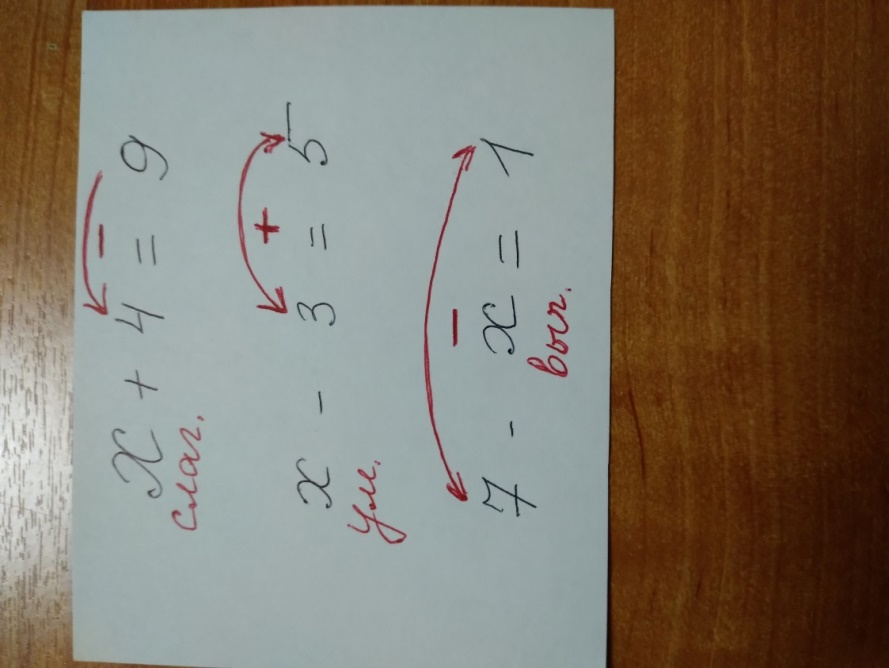 −
x + 4 = 9
слаг.
+
x - 3 = 5
ум.
−
7 - x = 1
выч.